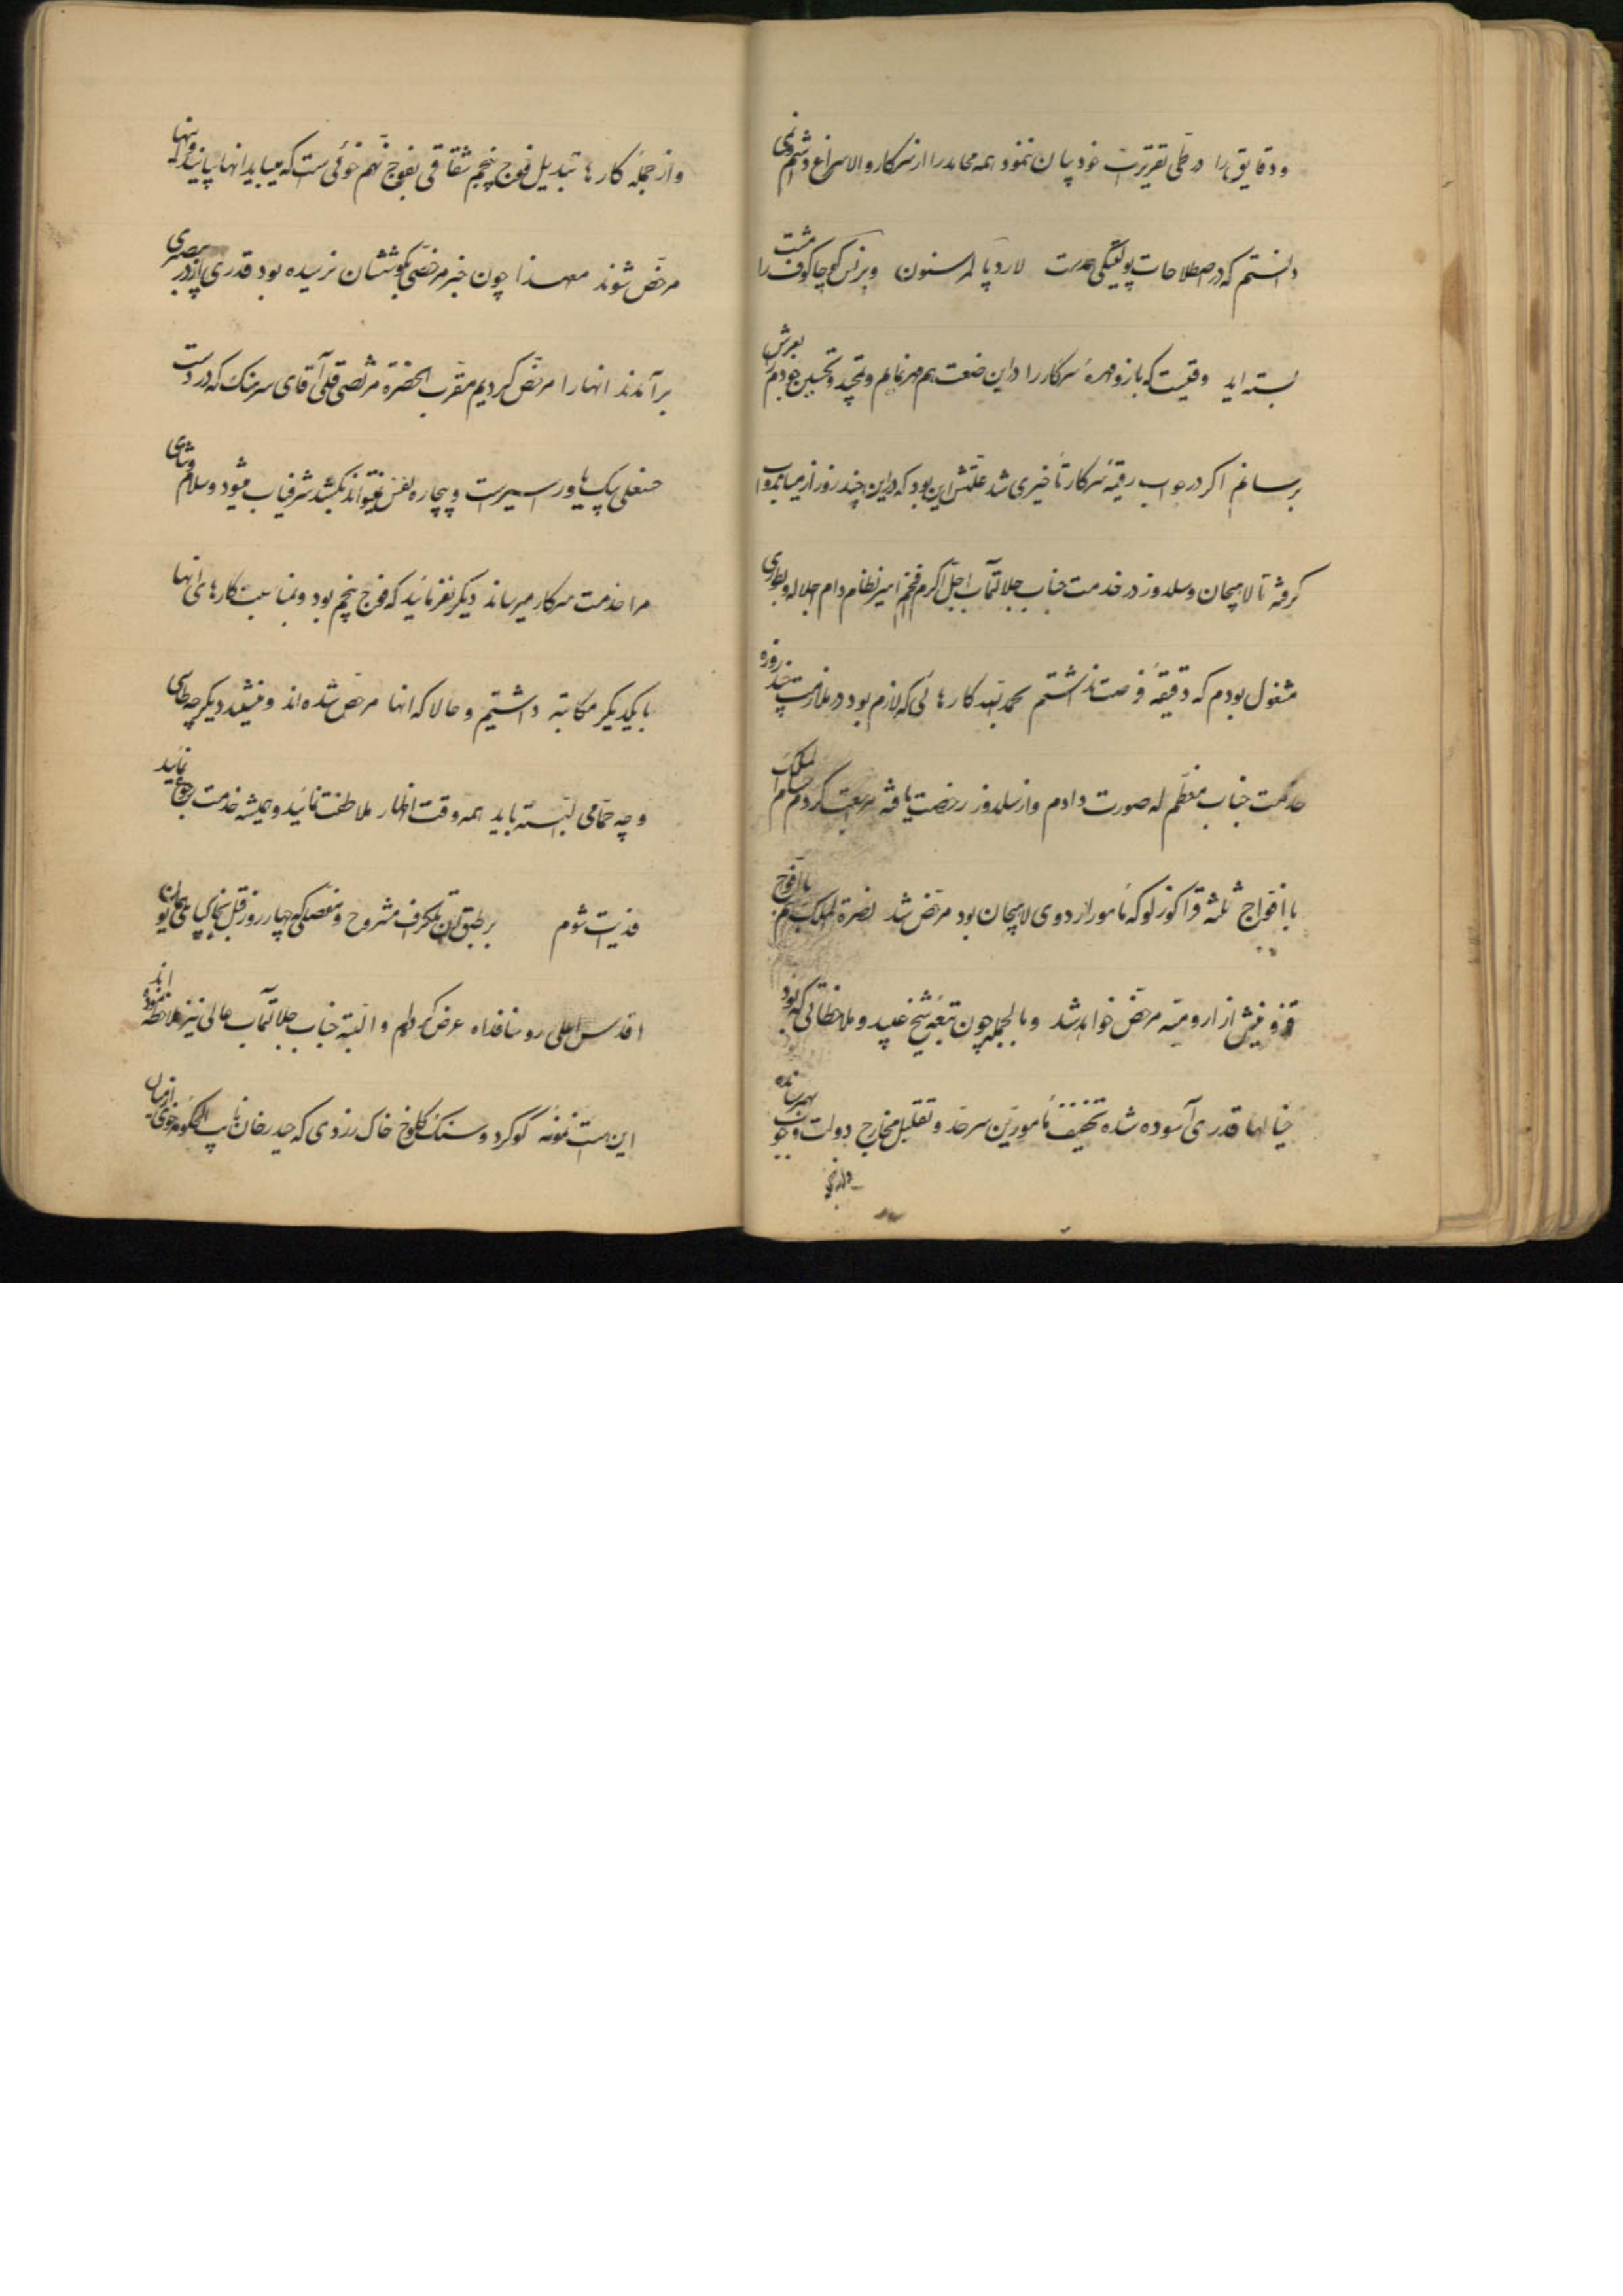 و دقایق را در طی تقریرات خود بیان نموده همه محامد را از سرکار والا سراغ داشتم
دانستم که در اصطلاحات پولتیکی مدت لارد پالمرستون و پرنس کورچاکوف را مشت
بسته اید وقتیست که بازو مهره سرکار را در این صنعت هم مهر نمایم و تمجید و تحسین خودم را بعرض
برسانم اگر در جواب رقیمه سرکار تأخیری شد علتش این بود که در این چند روز از میاندوآب
گرفته تا لاهیجان و سلدوز در خدمت جناب جلالتمآب اجل اکرم افخم امیر نظام دام اجلاله بطوری
مشغول بودم که دقیقه فرصت نداشتم بحمد الله کارهائی که لازم بود در ملازمت چند روزه
خدمت جناب معظم له صورت دادم و از سلدوز رخصت یافته مراجعت کردم حسام الملک
با افواج ثلثه قراگوزلو که مأمور اردوی لاهیجان بود مرخص شد نصرة الملک هم با افواج
قزوینش از ارومیه مرخص خواهد شد و بالجمله چون تبعه شیخ عبید و ملاحظاتی که بود
خیالها قدری آسوده شده تخفیف مأمورین سرحد و تقلیل مخارج دولت وجوب بهم رسانده
و از جمله کارها تبدیل فوج پنجم شقاقی بفوج نهم خوئی است که میباید آنها بیایند و اینها
مرخص شوند معهذا چون خبر مرخصی بگوششان نرسیده بود قدری از در بیصبری
برآمدند آنها را مرخص کردیم مقرب الحضرة مرتضی قلی آقای سرهنگ که در دست
حسنعلی بیک یاور اسیر است و بیچاره نفس نمیتواند بکشد شرفیاب میشود و سلام و ثنای
مرا خدمت سرکار میرساند دیگر نفرمائید که فوج پنجم بود و بمناسبت کارهای آنها
با یکدیگر مکاتبه داشتیم و حالا که آنها مرخص شده اند و میشوند دیگر چه طاسی
و چه حمامی البته باید همه وقت اظهار ملاطفت نمائید و همیشه خدمت رجوع نمائید
فدایت شوم بر طبق آن تلگراف مشروح و مفصلی که چهار روز قبل بخاکپای همایون
اقدس اعلی روحنا فداه عرض کردم و البته جناب جلالتمآب عالی نیز ملاحظه نموده اند
این است نمونه گوگرد و سنگ کلوخ خاک زردی که حیدر خان نایب الحکومه خوی از میان